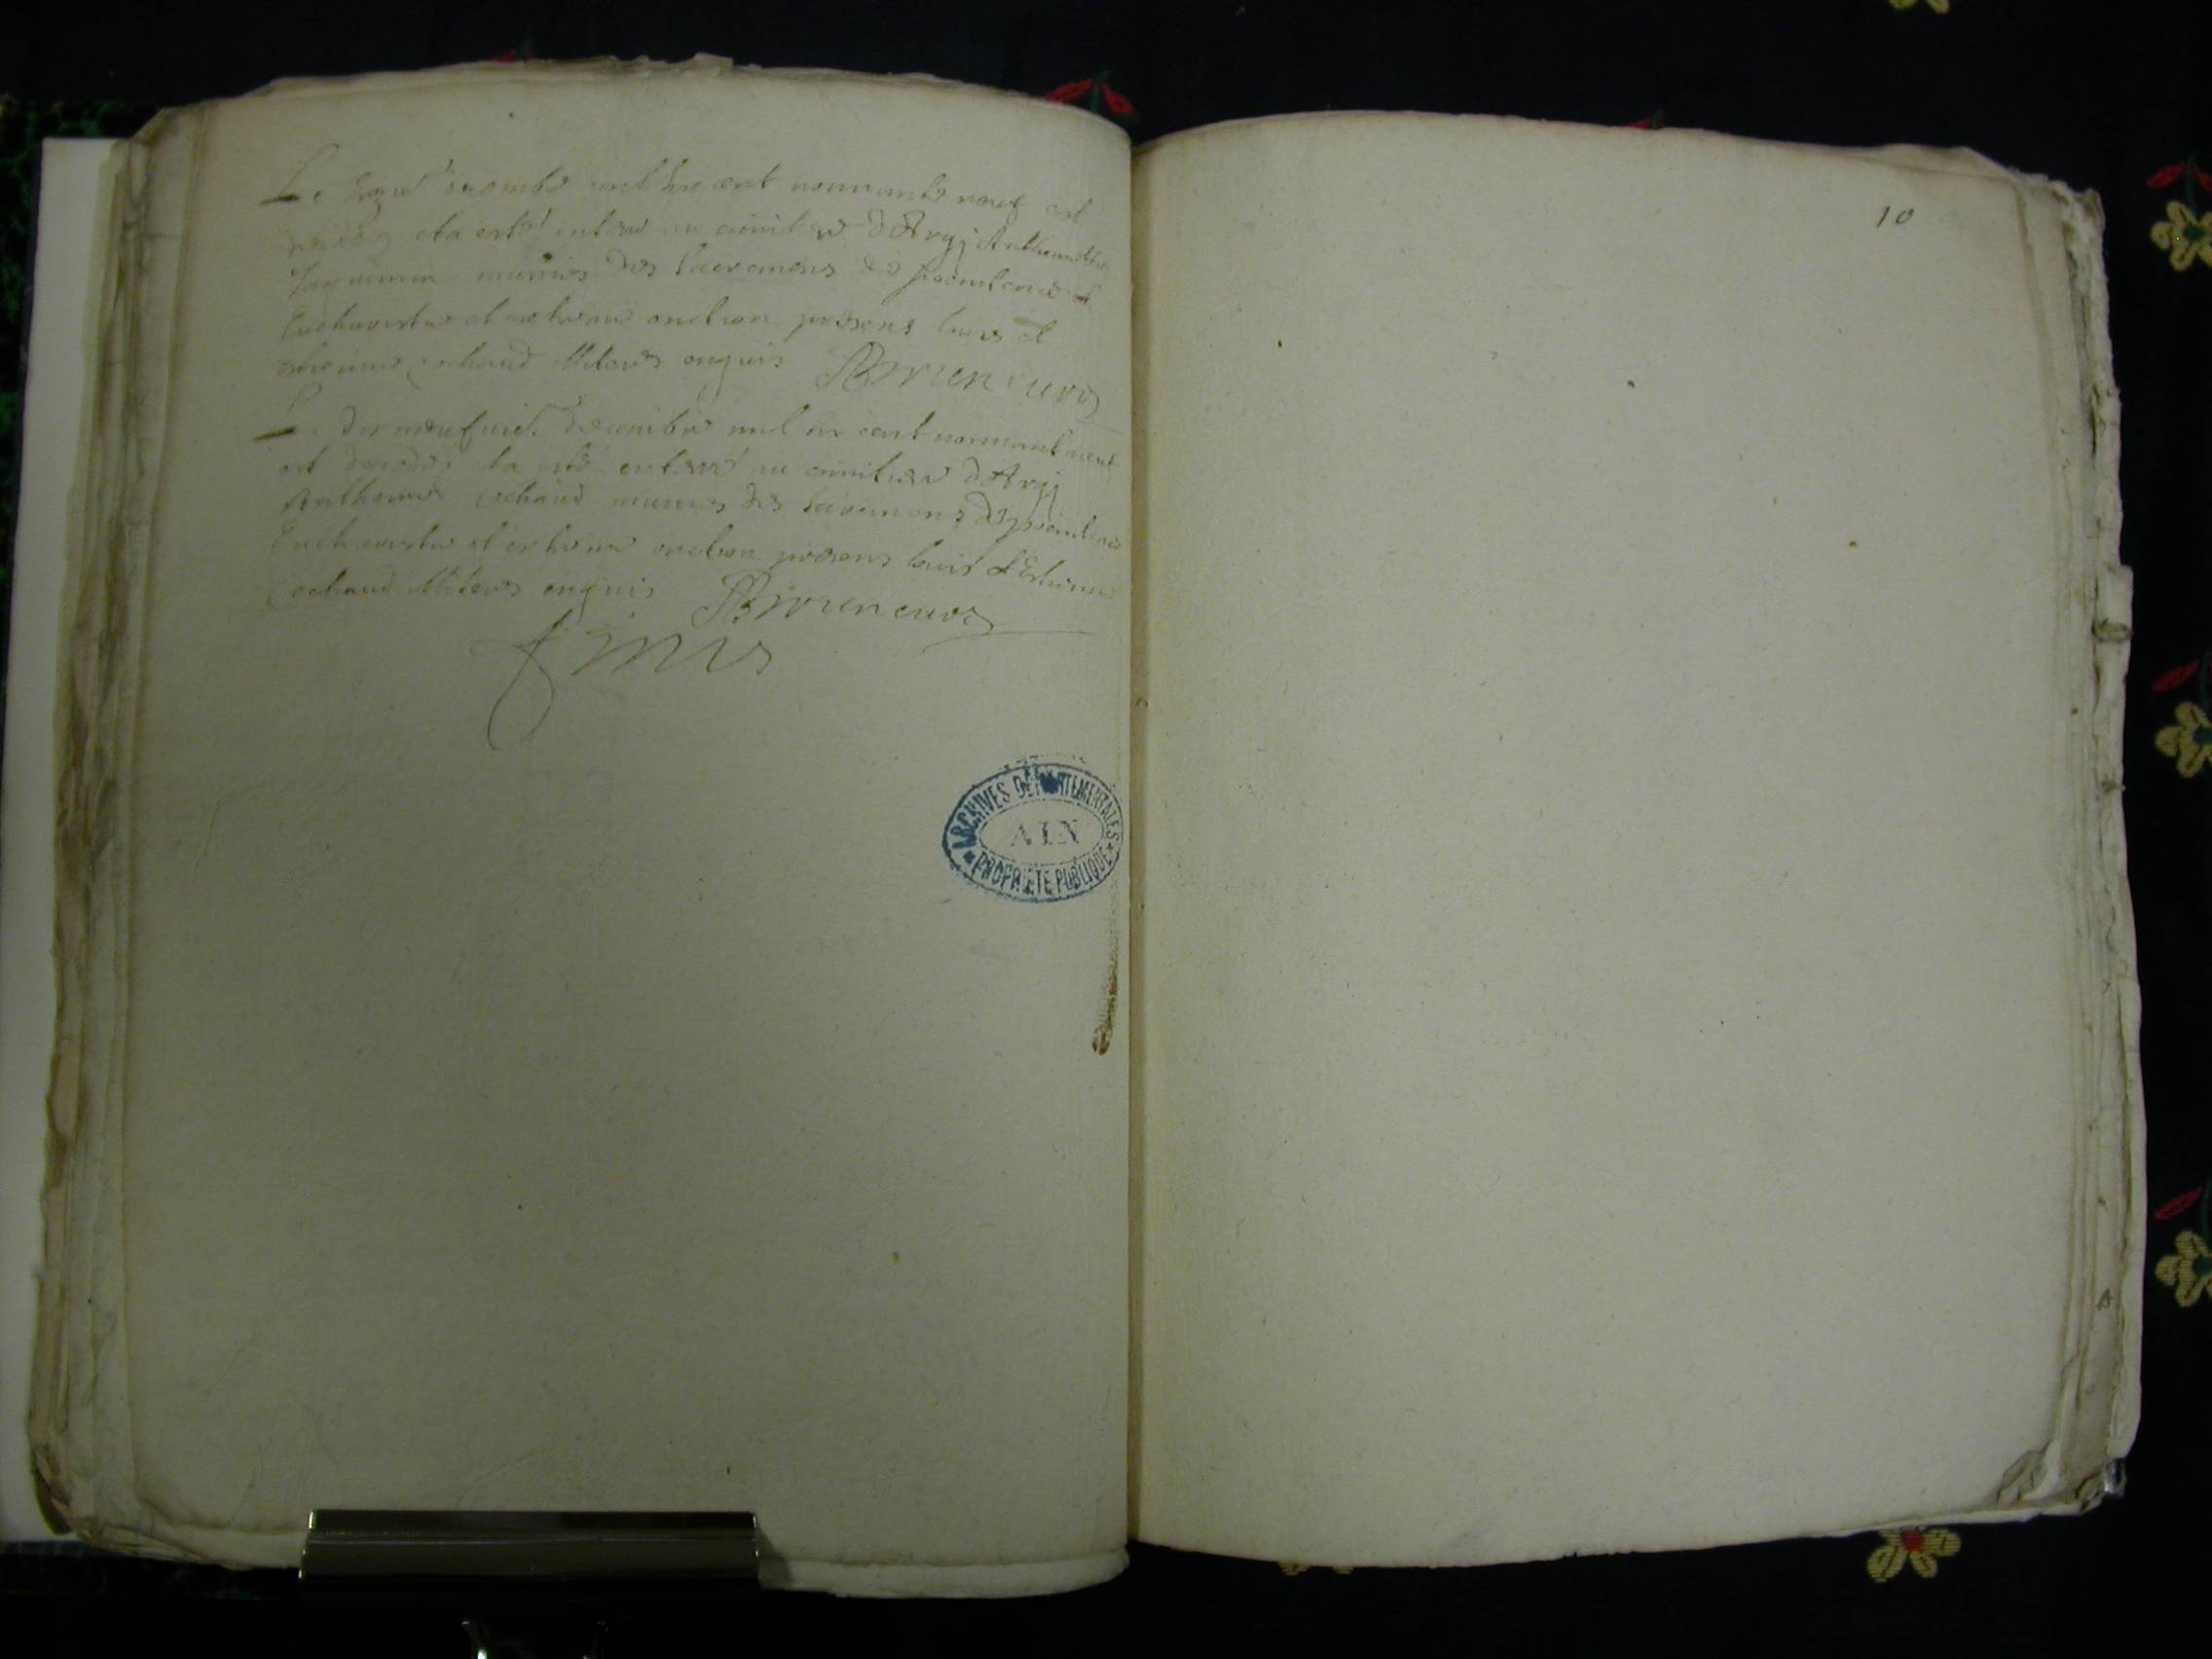 Le novembre mil six cent nonnante neuf est
decedez et a esté enterré au cimitiere d'Argj Anthoinette
munies des Sacremens de poenitence et
Eucharistie et extreme onction presens Louis et
Cochaud illiterés enquis BBrun curé
Le dixneufvie. decembre mil six cent nonnant neuf
est decedez et a esté enterré au cimitiere d'Argj
Anthoine Cochaud munies des sacremens de poenitence
Eucharistie et extreme onction presens Louis et Estienne
Cochaud illiterés enquis BBrun curé
finis
ARCHIVES DÉPARTEMENTALES
AIN
PROPRIÉTÉ PUBLIQUE
10